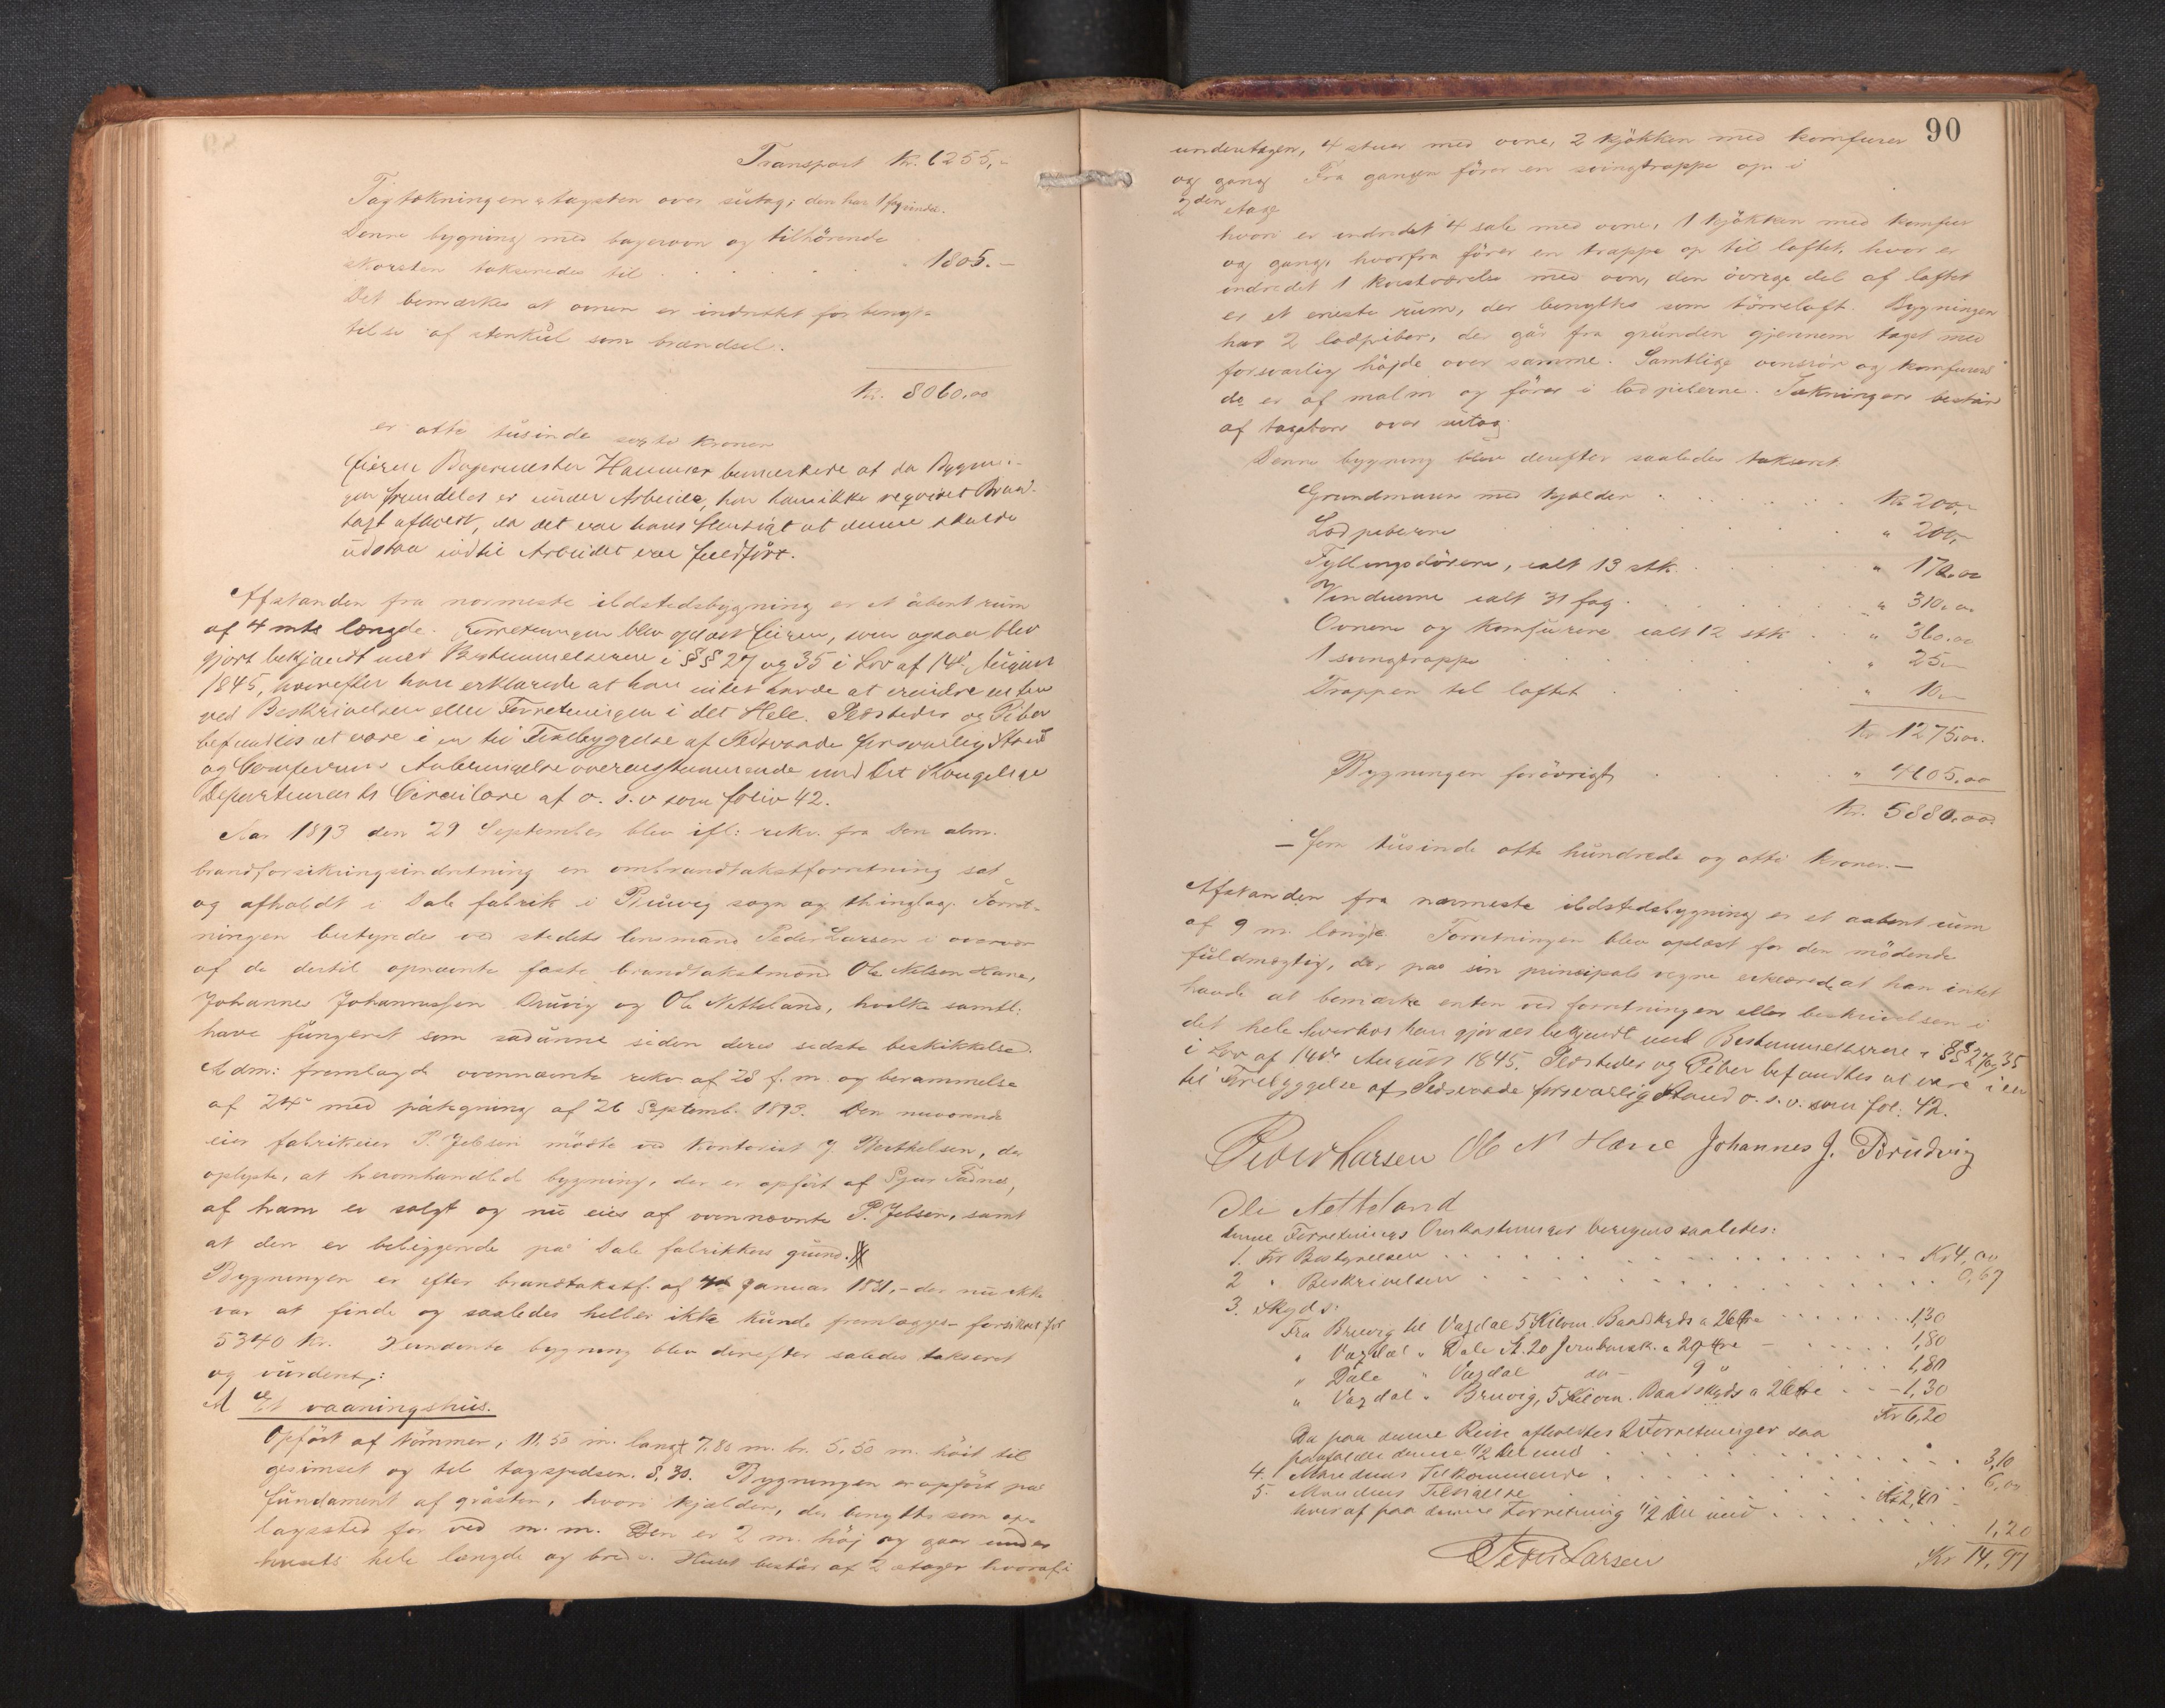 Transport Kr. 6255,-
Tagtækningen er tagsten over sutag; den har 1 fag vindu.
Denne bygning med bagerovn og tilhörende
skorsten takseredes til . . . . . . 1805.-
Det bemærkes at ovnen er indrettet for benyt-
telse af stenkul som brændsel.
Kr. 8060,00
er otte tusinde sexti kroner
Eieren Bagermester Hammer bemærkede at da Bygnin-
gen fremdeles er under Arbeide, har han ikke reqvireret Brand-
taxt afholdt, da det var hans Hensigt at denne skulde
udstaa indtil Arbeidet var fuldført.
Afstanden fra nærmeste ildstedsbygning er et åbent rum
af 4 mts længde. Forretningen blev oplæst Eieren, som ogsaa blev
gjort bekjendt med Bestemmelserne i §§ 27 og 35 i Lov af 14de August
1845, hvorefter han erklærede at han intet havde at erindre enten
ved Beskrivelsen eller Forretningen i det Hele. Ildsteder og Piber
befandtes at være i en til Forebyggelse af Ildsvaade forsvarlig Stand
og Comfurens Anbringelse overensstemmende med Det Kongelige
Departements Circulære af o. s. v som folio 42.
Aar 1893 den 29 September blev ifl: rekv. fra Den alm.
brandforsikringsindretning en ombrandtakstforretning sat
og afholdt i Dale fabrik i Bruvig sogn og thinglag. Forret-
ningen bestyredes ved stedets lensmand Peder Larsen i overvær
af de dertil opnævnte faste brandtakstmænd Ole Nilsen Hane,
Johannes Johannessen Bruvig og Ole Nætteland, hvilke samtl:
have fungeret som sådanne siden deres sidste beskikkelse.
Adm: fremlagde ovennævnte rekv af 23 f. m. og berammelse
af 24de med påtegning af 26 Septemb. 1893. Den nuværende
eier fabrikeier P. Jebsen mödte ved kontorist J. Berthelsen, der
oplyste, at heromhandlede bygning, der er opfört af Sjur Fadnes,
af ham er solgt og nu eies af ovennævnte P. Jebsen, samt
at den er beliggende på Dale fabrikkers grund.
Bygningen er efter brandtakstf. af 4de Januar 1881,- der nu ikke
var at finde og saaledes heller ikke kunde fremlægges- forsikret for
5340 Kr. bygning blev derefter saledes takseret
og vurderet:
A Et vaaningshus.
Opfört af tömmer, 11,50 m. langt 7,80 m. br. 5,50 m. höit til
gesimset og til tagspidsen 8,30. Bygningen er opfört på
fundament af gråsten, hvori kjælder, der benyttes som op-
lagssted for ved m. m. Den er 2 m. höj og gaar under
husets hele længde og brede. Huset består af 2 etager hvoraf i
90
underetagen, 4 stuer med ovne, 2 kjökken med komfurer
og gang Fra gangen förer en svingtrappe op i
2den Etage
hvori er indredet 4 sale med ovne, 1 kjökken med komfur
og gang, hvorfra förer en trappe op til loftet, hvor er
indredet 1 kvistværelse med ovn, den övrige del af loftet
er et eneste rum, der benyttes som törreloft. Bygningen
har 2 lodpiber, der går fra grunden gjennem taget med
forsvarlig höjde over samme. Samtlige ovnsrör og komfurerö
do er af malm og föres i lodpiberne. Tækningen består
af tagsten over sutag.
Denne bygning blev derefter saaledes takseret
Grundmuren med kjælder . . . . . . Kr 200,-
Lodpiberne . . . . . " 200,-
Fyllingsdörene, ialt 13 stk. . . . . " 170,00
Vinduerne ialt 31 fag . . . . . " 310,00
Ovnene og komfurene ialt 12 stk . . " 360,00
1 svingtrappe . . . . . " 25,-
Trappen til loftet . . . . . " 10,-
Kr 1275,00.
Bygningen forövrigt . . . . " 4605,00
Kr. 5880,00.
- fem tusinde otte hundrede og otti kroner.-
Afstanden fra nærmeste ildstedsbygning er et aabent rum
af 9 m. længde. Forretningen blev oplæst for den mödende
fuldmægtig, der paa sin principals vegne erklærede at han intet
havde at bemærke enten ved forretningen eller beskrivelsen i
det hele hvorhos han gjordes bekjendt med Bestemmelserne i §§ 27 og 35
i Lov af 14de August 1845. Ildsteder og Piber befandtes at være i en
til Forebyggelse af Ildsvaade forsvarlig Stand o. s. v. som fol. 42.
Peder Larsen Ole N Hane Johannes J. Bruvig
Ole Netteland
Denne Forretnings Omkostninger beregnes saaledes:
1. For Bestyrelsen . . . . . . Kr 4,00
2 " Beskrivelsen . . . . . . 0,67
3. Skyds:
Fra Bruvig til Vagdal 5 Kilom. Baadskyds a 26 Øre . . . . 1,30
" Vagdal " Dale St. 20 Jernbanek. a 29 Øre - . . . 1,80
" Dale " Vagdal do - 9 " . . . 1,80
" Vagdal " Bruvig, 5 Kilom. Baadskyds a 26 Øre . . - 1,30
Kr 6,20
Da paa denne Reise afholdtes 2 Forretninger saa
paafalder denne 1/2 Del med . . . . . . 3,10
4. Mændenes Tilkommende . . . . . . 6,00
5. Mændenes . . . . . Kr 2,40
hvoraf paa denne Forretning 1/2 Del med . . . . . . 1,20
Kr 14,97
Peder Larsen